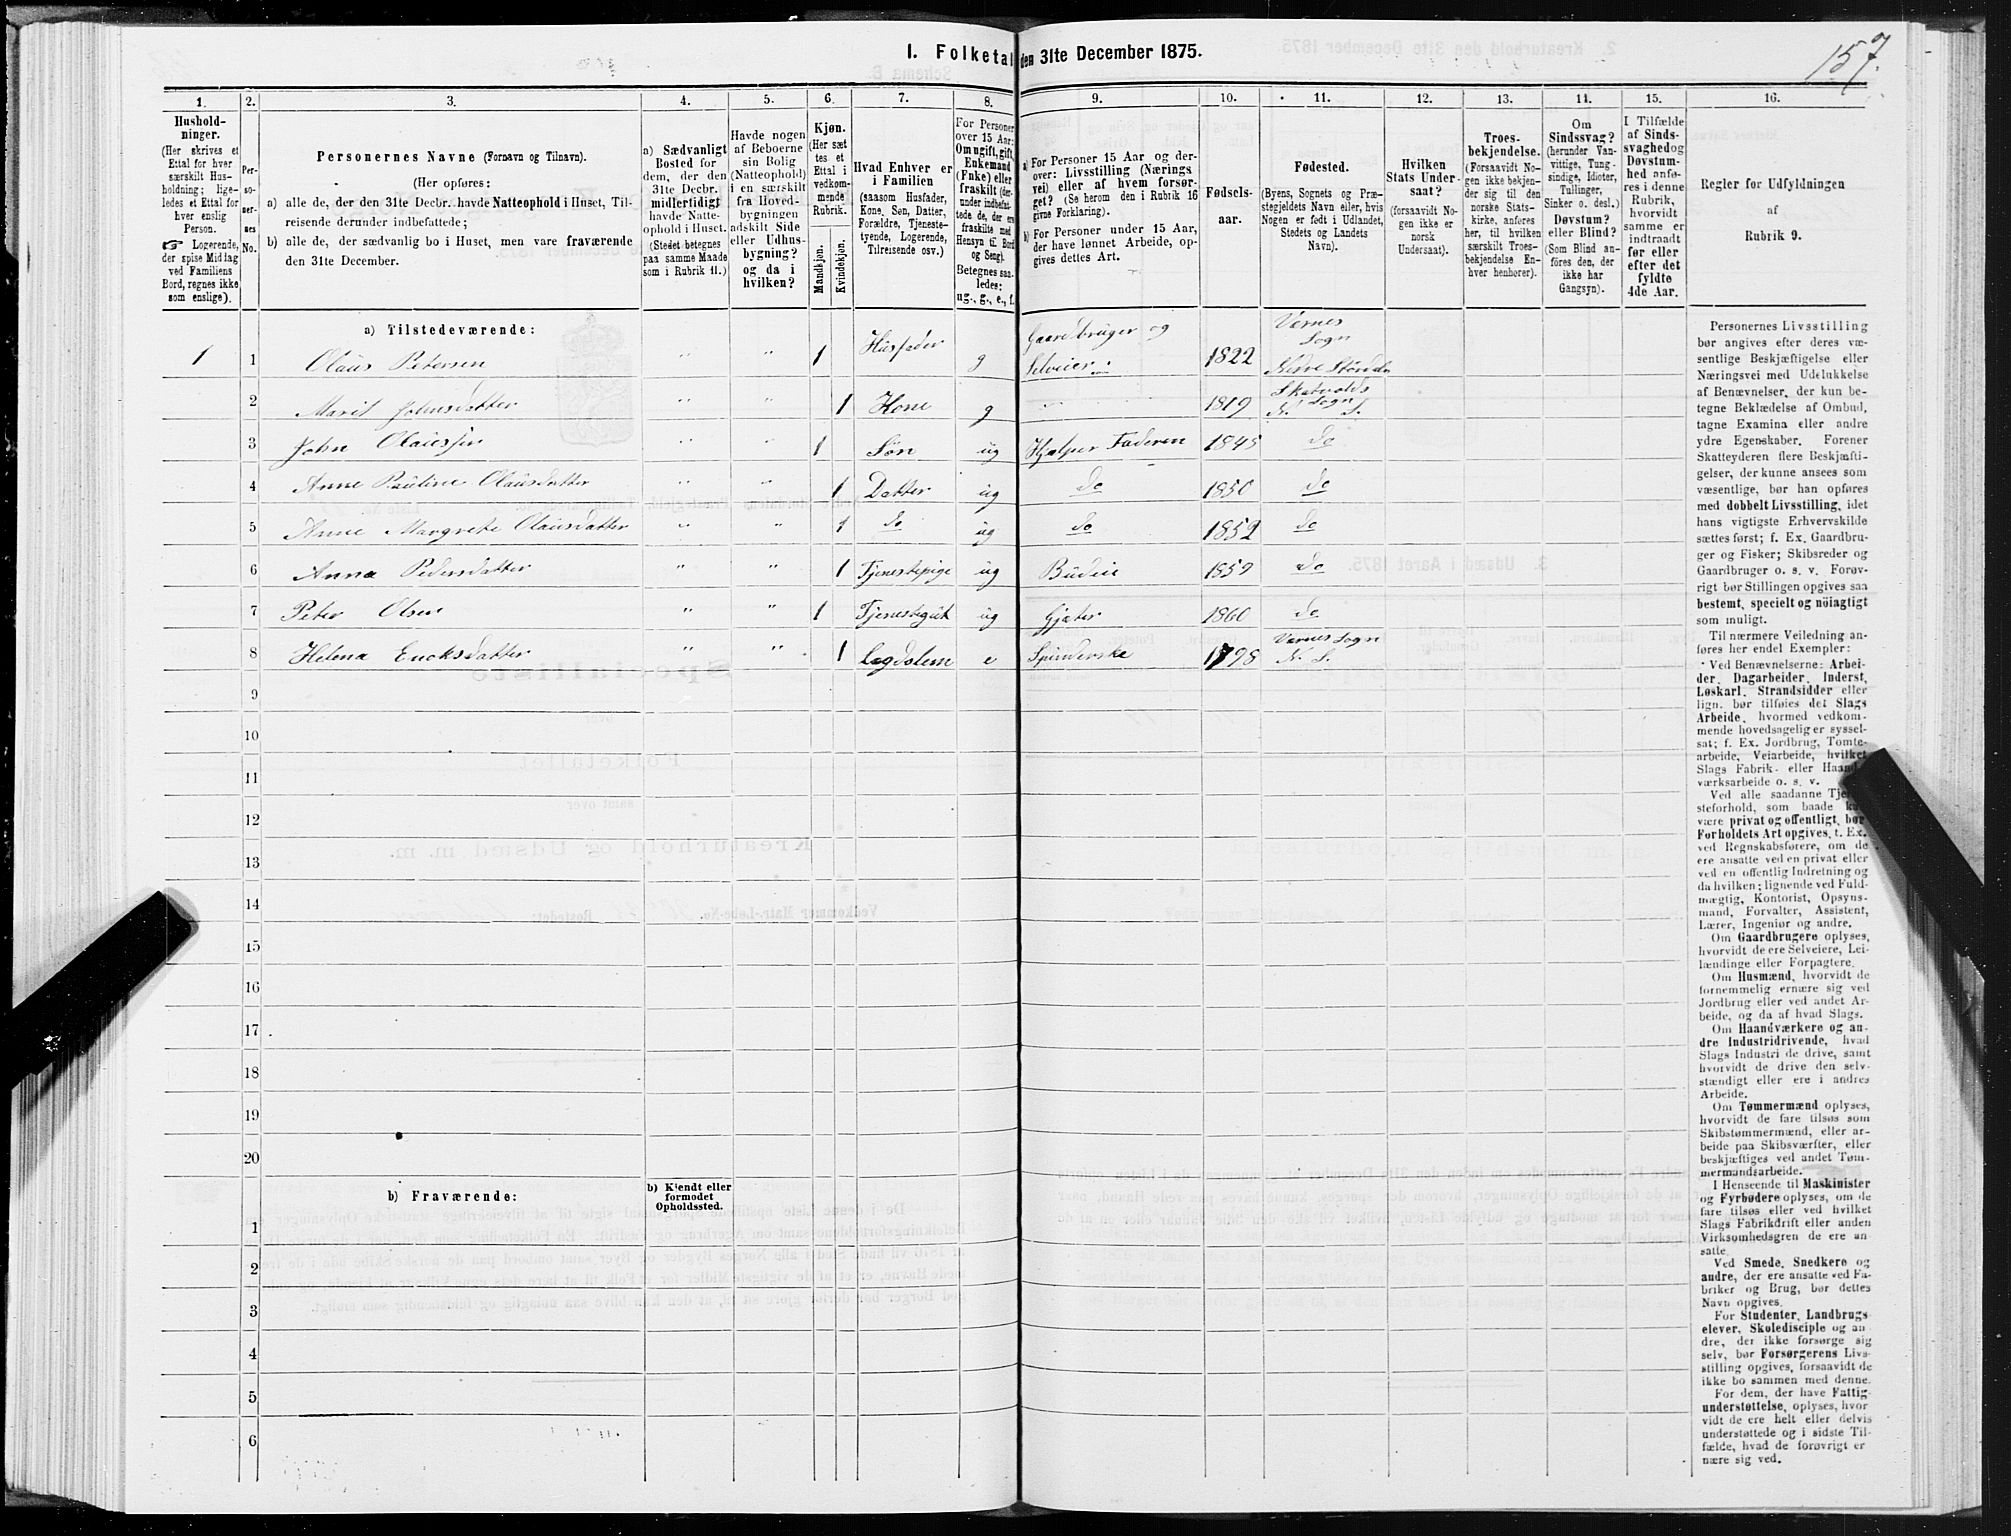 157.
1. Folketal den 31te December 1875.
1. 2. 3. 4. 5. 6. 7. 8. 9. 10. 11. 12. 13. 14. 15. 16.
Hushold-
ninger.
(Her skrives et
Ettal for hver
særskilt Hus-
holdning; lige-
ledes et Ettal for
hver enslig
Person.
☞ Logerende,
der spise Middag
ved Familiens
Bord, regnes ikke
som enslige).
Per-
so-
ner-
nes
No.
Personernes Navne (Fornavn og Tilnavn).
(Her opføres:
a) alle de, der den 31te Decbr. havde Natteophold i Huset, Til-
reisende derunder indbefattede;
b) alle de, der sædvanlig bo i Huset, men vare fraværende
den 31te December.
a) Sædvanligt
Bosted for
dem, der den
31te Decbr.
midlertidigt
havde Natte-
ophold i Huset.
(Stedet betegnes
paa samme Maade
som i Rubrik 11.)
Havde nogen
af Beboerne
sin Bolig
(Natteophold)
i en særskilt
fra Hoved-
bygningen
adskilt Side
eller Udhus-
bygning?
og da i
hvilken?
Kjøn.
(Her sæt
tes et
Ettal i
vedkom-
mende
Rubrik.
Mandkjøn.
Kvindekjøn.
Hvad Enhver er
i Familien
(saasom Husfader,
Kone, Søn, Datter,
Forældre, Tjeneste-
tyende, Logerende,
Tilreisende osv.)
For Personer
over 15 Aar:
Om ugift, gift,
Enkemand
(Enke) eller
fraskilt (der-
under indbefat-
tede de, der ere
fraskilte med
Hensyn til Bord
og Seng).
Betegnes saa-
ledes:
ug., g., e., f.
a) For Personer 15 Aar og der-
over: Livsstilling (Nærings
vei) eller af hvem forsør-
get? (Se herom den i Rubrik 16
givne Forklaring).
b) For Personer under 15 Aar,
der have lønnet Arbeide, op-
gives dettes Art.
Fødsels-
aar.
Fødested.
(Byens, Sognets og Præ-
stegjeldets Navn eller, hvis
Nogen er født i Udlandet,
Stedets og Landets
Navn).
Hvilken
Stats Under-
saat?
(forsaavidt No-
gen ikke er
norsk
Undersaat).
Troes-
bekjendelse.
(Forsaavidt No-
gen ikke bekjen-
der sig til den
norske Stats-
kirke, anføres
her, til hvilken
særskilt Troes-
bekjendelse En-
hver henhører).
Om
Sindssvag?
(herunder Van-
vittige, Tung-
sindige, Idioter,
Tullinger,
Sinker o. desl.)
Døvstum?
eller Blind?
(Som Blind an-
føres den, der
ikke har
Gangsyn).
I Tilfælde
af Sinds-
svaghed og
Døvstum-
hed anfø-
res i denne
Rubrik,
hvorvidt
samme er
indtraadt
før eller
efter det
fyldte
4de Aar.
Regler for Udfyldningen
af
Rubrik 9.
a) Tilstedeværende:
1 1 Olaus Petersen " " 1 Husfader g Gaardbruger og Selveier 1822 Værnes Sogn Nedre Stördal
2 Marit Johnsdatter " " 1 Kone g " " 1819 Skatvolds Sogn N. S.
3 John Olaussen " " 1 Søn ug Hjælper Faderen 1845 do
4 Anne Pauline Olausdatter " " 1 Datter ug do 1850 do
5 Anne Margrete Olausdatter " " 1 do ug do 1852 do
6 Anna Pedersdatter " " 1 Tjenestepige ug Budeie 1859 do
7 Peter Olsen " " 1 Tjenestegut ug Gjæter 1860 do
8 Helena Ericksdatter " " 1 Lægdslem e Spinderske 1798 Værnes Sogn N. S.
9
10
11
12
13
14
15
16
17
18
19
20
b) Fraværende:
b) Kjendt eller
formodet
Opholdssted.
1
2
3
4
5
6
Personernes Livsstilling
bør angives efter deres væ-
sentlige Beskjæftigelse eller
Næringsvei med Udelukkelse
af Benævnelser, der kun be-
tegne Beklædelse af Ombud,
tagne Examina eller andre
ydre Egenskaber. Forener
Skatteyderen flere Beskjæfti-
gelser, der kunne ansees som
væsentlige, bør han opføres
med dobbelt Livsstilling, idet
hans vigtigste Erhvervskilde
sættes først; f. Ex. Gaardbru-
ger og Fisker; Skibsreder og
Gaardbruger o. s. v. Forøv-
rigt bør Stillingen opgives saa
bestemt, specielt og nöiagtigt
som muligt.
Til nærmere Veiledning an-
føres her endel Exempler:
Ved Benævnelserne: Arbei-
der, Dagarbeider, Inderst,
Løskarl, Strandsidder eller
lign. bør tilføies det Slags
Arbeide, hvormed vedkom-
mende hovedsagelig er syssel-
sat; f. Ex. Jordbrug, Tomte-
arbeide, Veiarbeide, hvilket
Slags Fabrik- eller Haand-
værksarbeide o. s. v.
Ved alle saadanne Tje-
steforhold, som baade ka
være privat og offentligt, bør
Forholdets Art opgives, t. Ex.
ved Regnskabsførere, om de
ere ansatte ved en privat eller
ved en offentlig Indretning og
da hvilken; lignende ved Fuld-
mægtig, Kontorist, Opsyns-
mand, Forvalter, Assistent,
Lærer, Ingeniør og andre.
Om Gaardbrugere oplyses,
hvorvidt de ere Selveiere, Lei-
lændinge eller Forpagtere.
Om Husmænd, hvorvidt de
fornemmelig ernære sig ved
Jordbrug eller ved andet Ar-
beide, og da af hvad Slags.
Om Haandværkere og an-
dre Industridrivende, hvad
Slags Industri de drive, samt
hvorvidt de drive den selv-
stændigt eller ere i andres
Arbeide.
Om Tømmermænd oplyses,
hvorvidt de fare tilsøs som
Skibstømmermænd, eller ar-
beide paa Skibsværfter, eller
beskjæftiges ved andet Tøm-
mermandsarbeide.
I Henseende til Maskinister
og Fyrbødere oplyses, om de
fare tilsøs eller ved hvilket
Slags Fabrikdrift eller anden
Virksomhedsgren de ere an-
satte.
Ved Smede, Snedkere og
andre, der ere ansatte ved Fa-
briker og Brug, bør dettes
Navn opgives.
For Studenter, Landbrugs-
elever, Skoledisciple og an-
dre, der ikke forsørge sig
selv, bør Forsørgerens Livs-
stilling opgives, forsaavidt de
ikke bo sammen med denne.
For dem, der have Fattig-
understøttelse, oplyses, hvor
vidt de ere helt eller delvis
understøttede og i sidste Til-
fælde, hvad de forøvrigt er
nære sig ved.